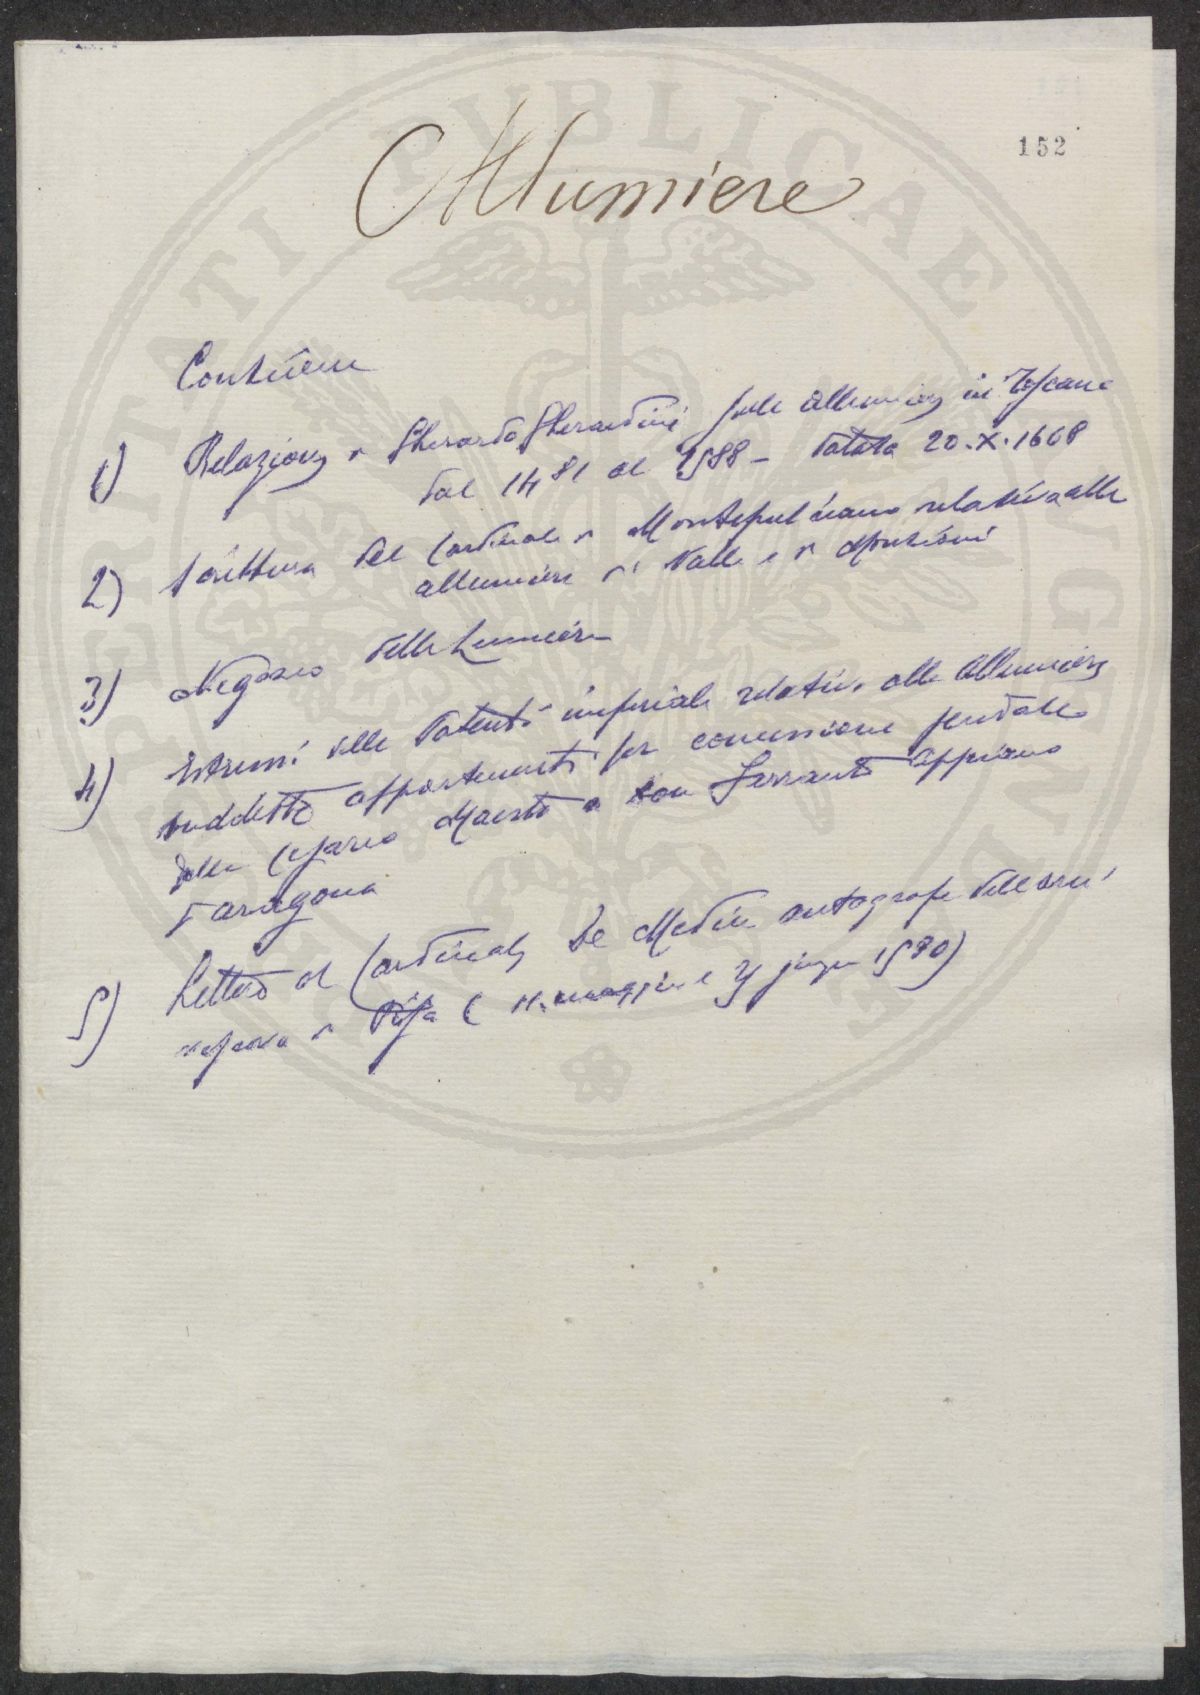 152
Allumiere
Contiene
1) Relazione di Gherardo Gherardini sulle allumiere in Toscana
dal 1481 al 1588 - datata 20.X.1608
2) Scrittura del Cardinale di Montepulciano relativa alle
allumiere di Valle e di Montioni
3) Negozio delle Lumiere
4) Estremi delle Patenti imperiali relative alle Allumiere
suddette appartenenti per concessione feudale
della Cesarea Maestà a don Ferrante Appiano
d'aragona
5) Lettere al Cardinale De Medici autografe dell'arci
vescovo di Pisa ( maggio e giugno 1580)